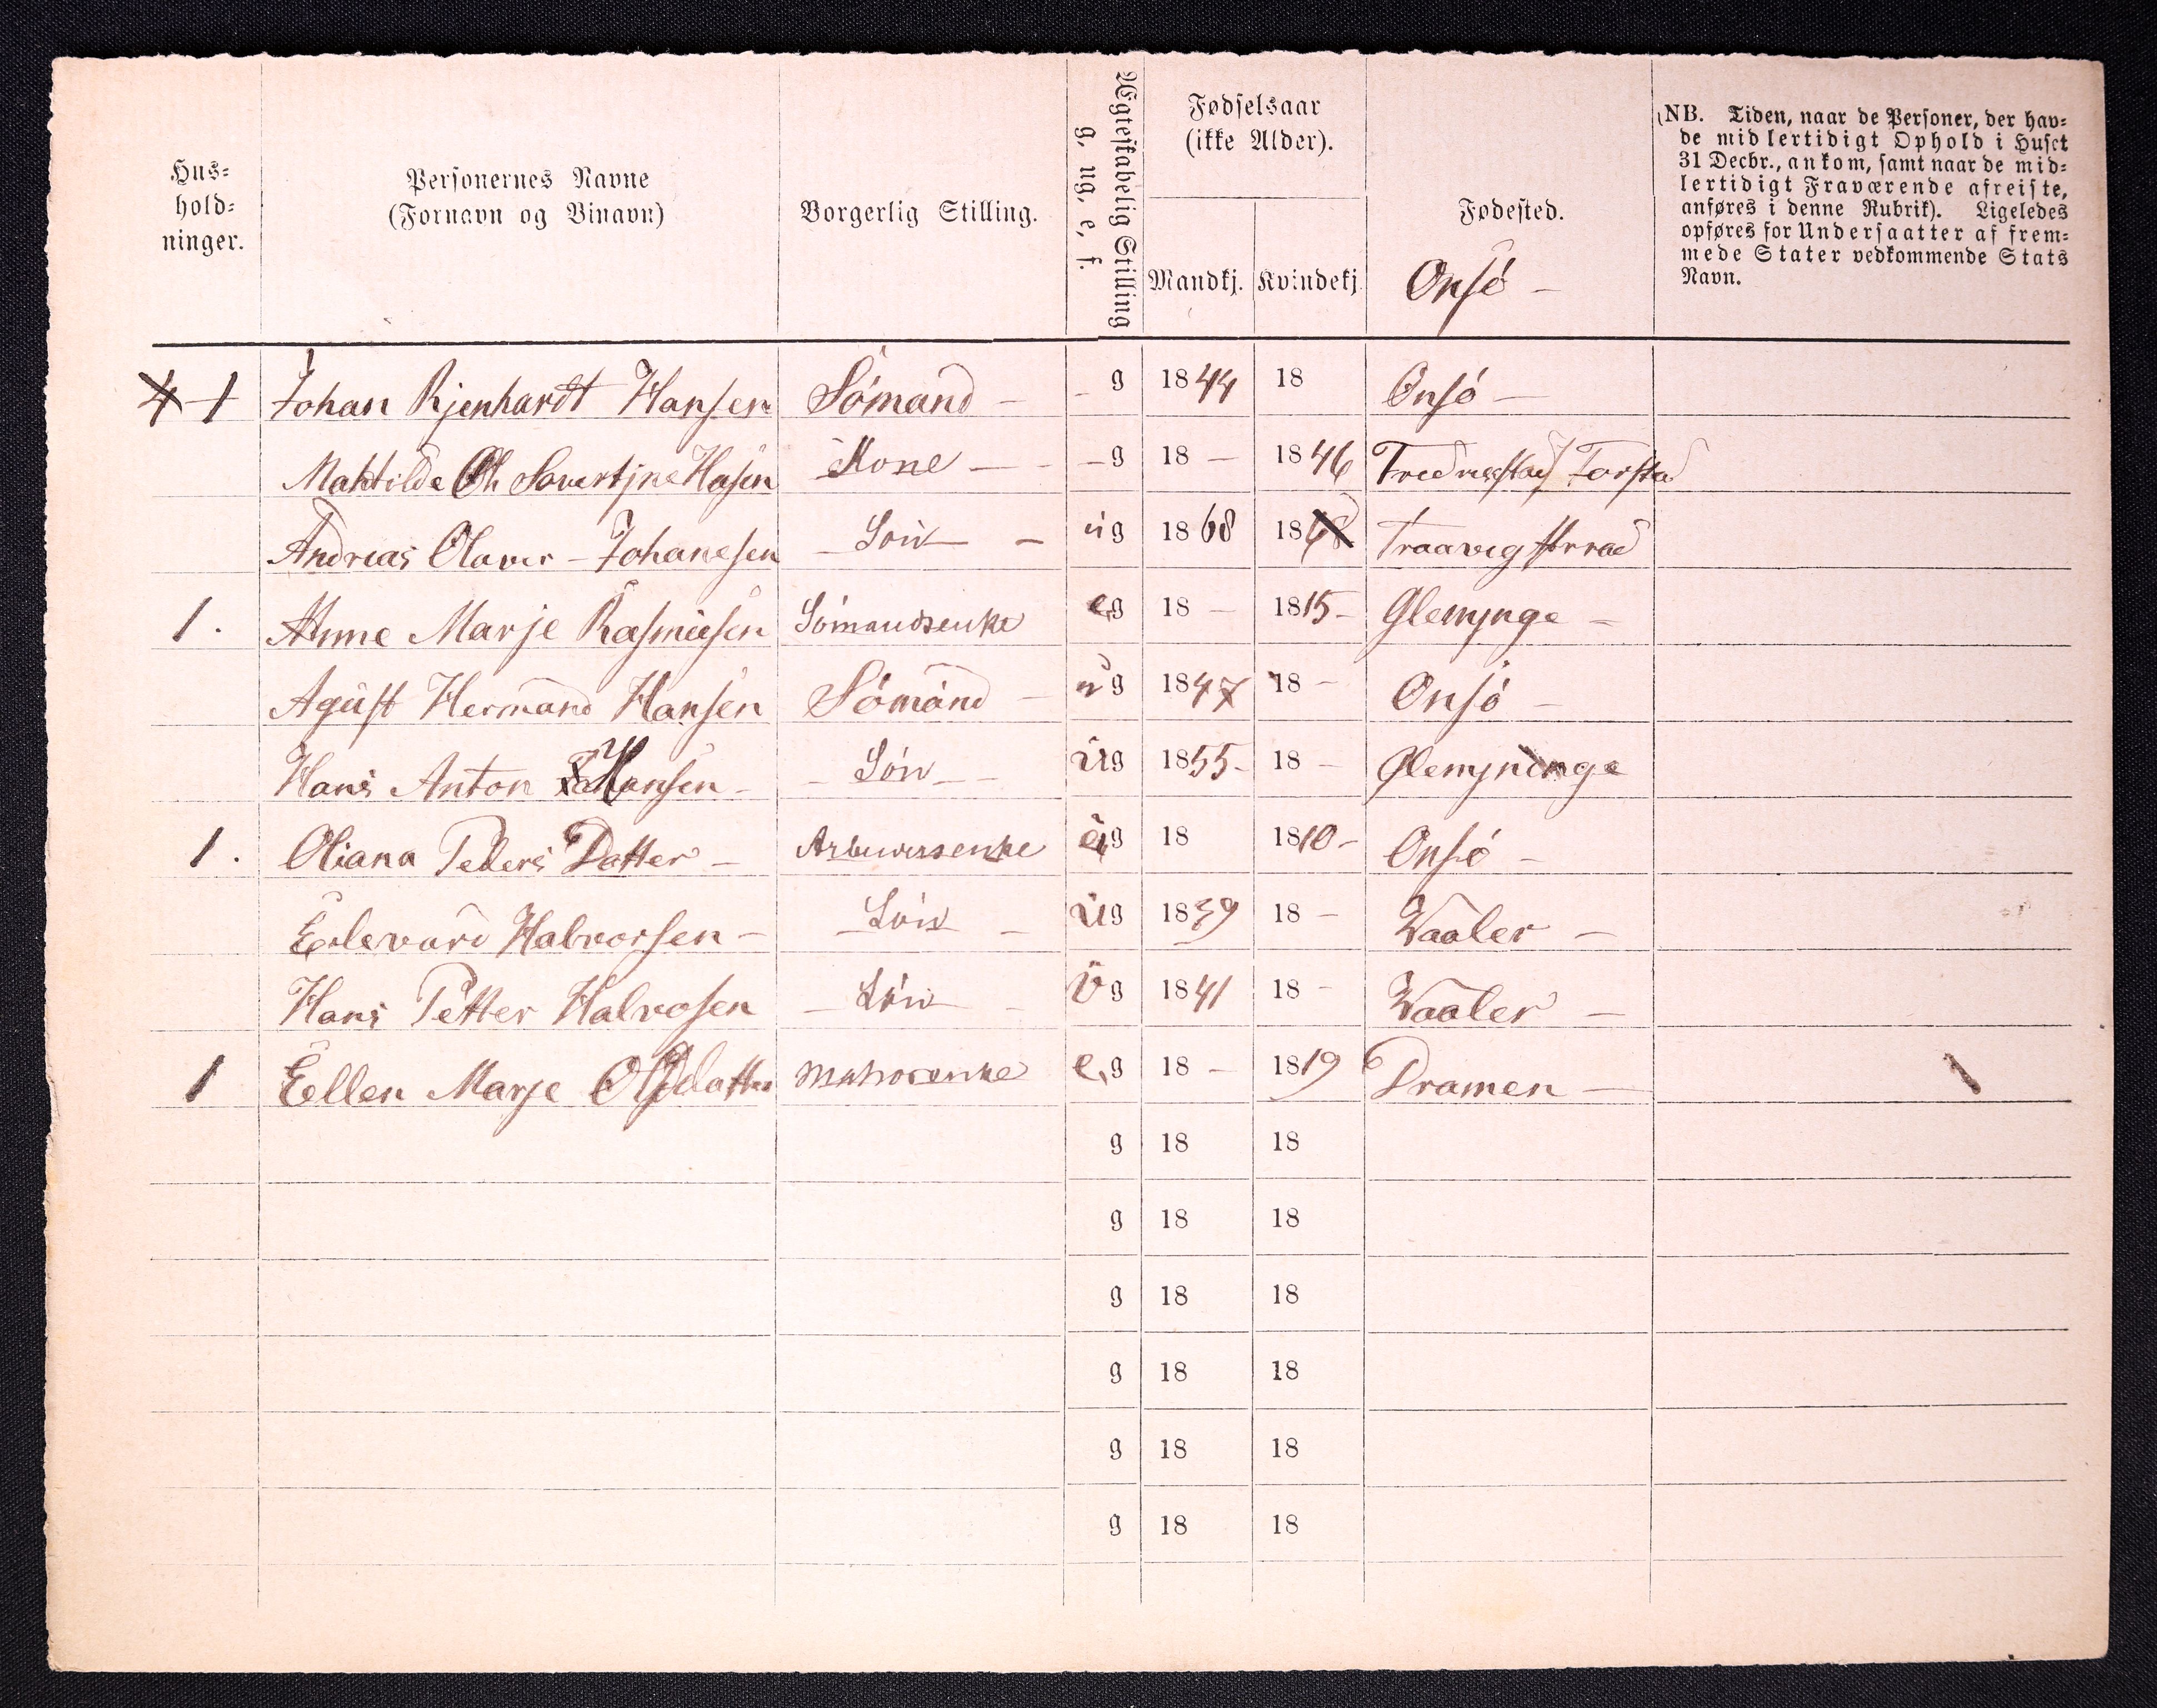 Hus-
hold-
ninger.
Personernes Navne
(Fornavn og Vinavn)
Borgerlig Stilling.
Ægteskabelig Stilling
g. ug. e. f.
Fødselsaar
(ikke Alder).
Mandkj. Kvindekj.
Fødested.
Onsö -
(NB. Tiden, naar de Personer, der hav-
de midlertidigt Ophold i Huset
31 Decbr., ankom, samt naar de mid-
lertidigt Fraværende afreiste,
anføres i denne Rubrik). Ligeledes
opføres for Undersaatter af frem-
mede Stater vedkommende Stats
Navn.
1 Johan Rjenhardt Hansen Sömand - g 1844 18 Onsö -
Mahtilde Severtjne Hasen Kone - g 18 - 1846 Fredriksstad Forstad
Andreas Olaves - Johanesen - Sön - ug 1868 18
1. Anne Marje Rasmusen Sömandsenke eg 18 - 1815 - Glemjnge -
Agust Hermand Hansen Sömand - ug 1847 18 - Onsö -
Hans Anton Hansen - - Sön - ug 1855 - 18 - Glemjninge
1. Oliana Peders Datter - eg 18 1810 - Onsö -
Edevard Halvorsen - - Sön - ug 1839 18 - Vaaler -
Hans Petter Halvosen - Sön - ug 1841 18 - Vaaler -
1 Eellen Marje Olsdatter e,g 18 - 1819 Dramen - 1
g 18 18
g 18 18
g 18 18
g 18 18
g 18 18
g 18 18